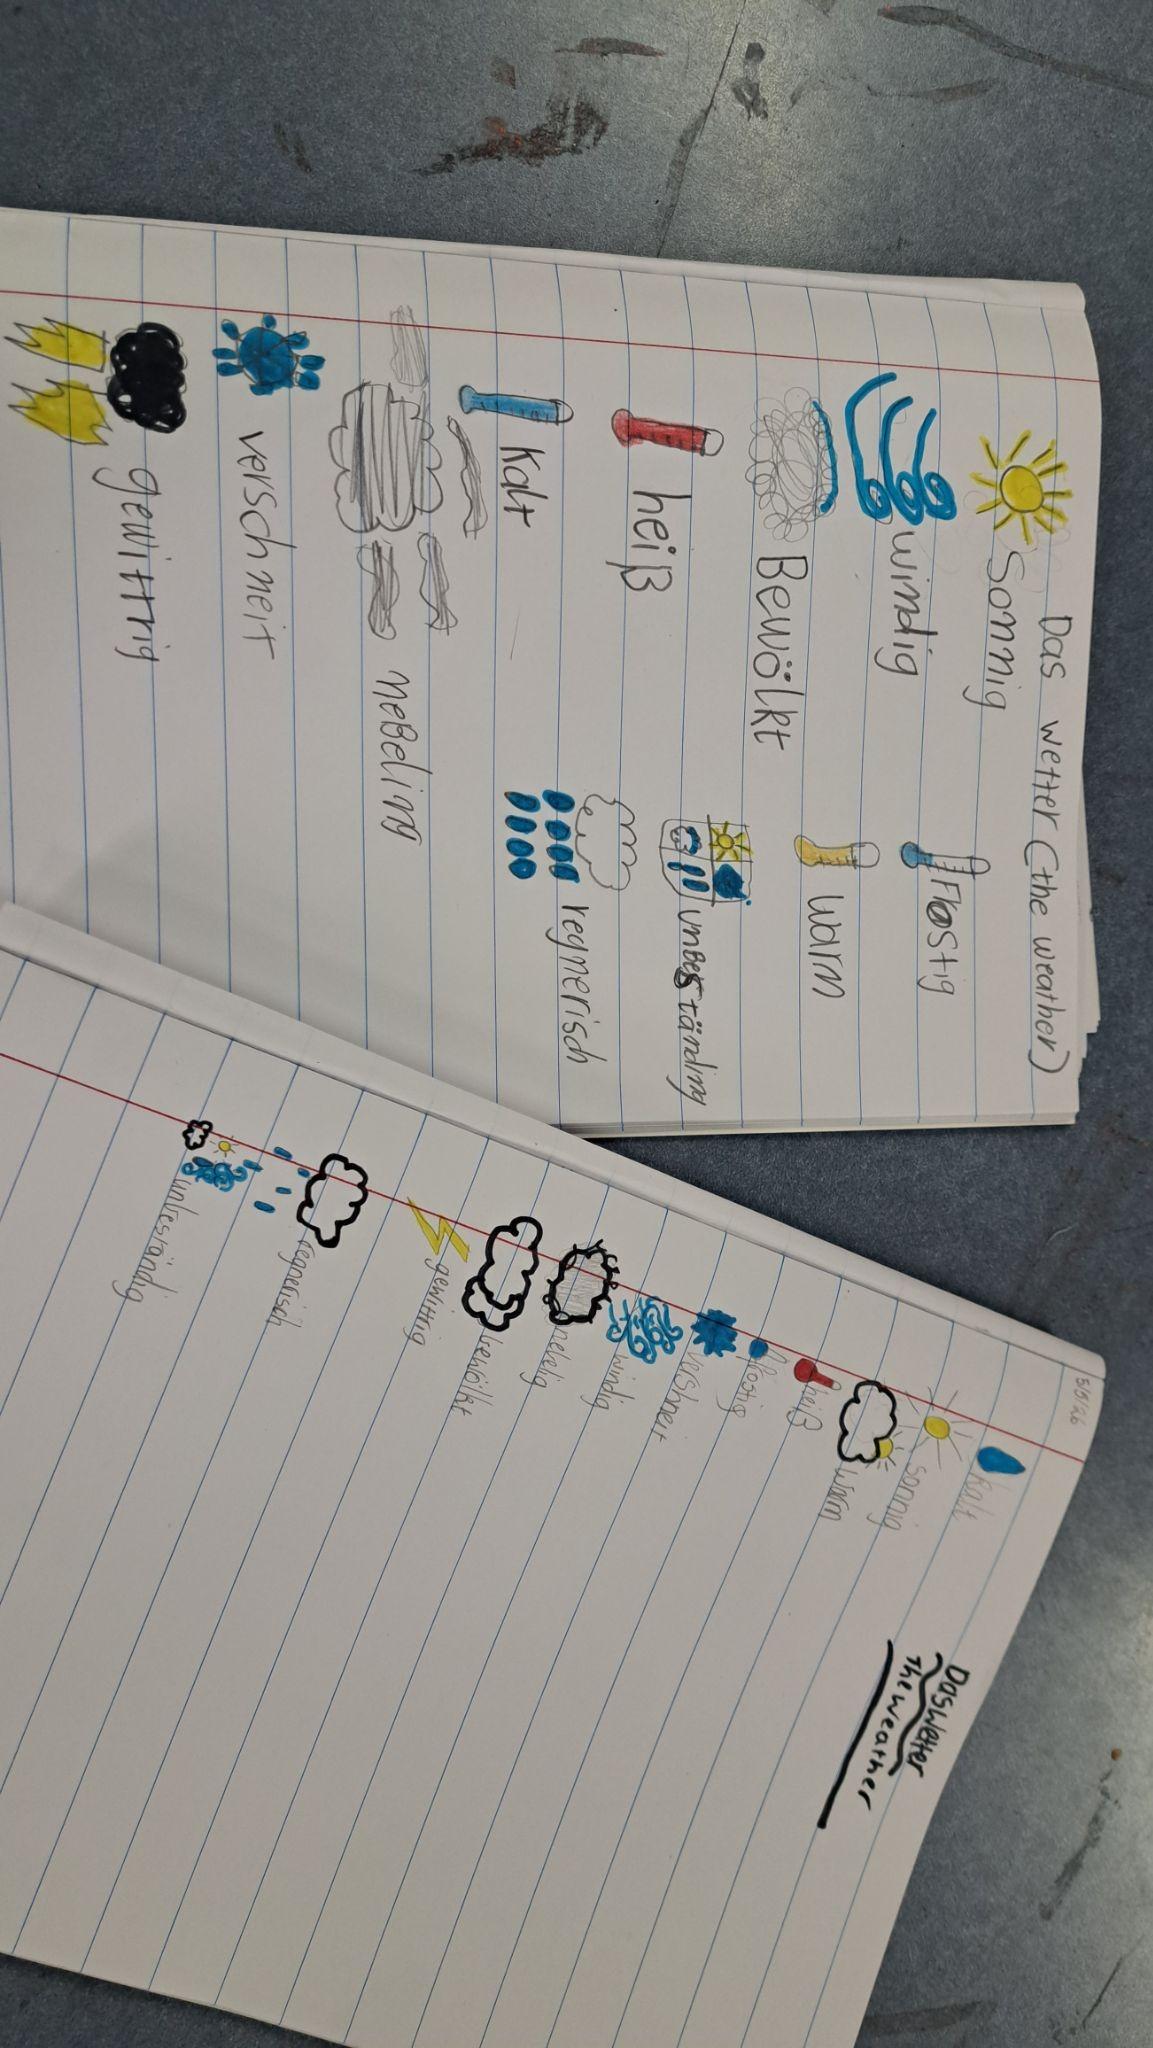 Das wetter (the weather)
Sonnig
Frostig
windig
warm
Bewölkt
unbeständing
heiß
regnerisch
Kalt
neBeling
verschneit
gewittrig
5/5/26
Das Wetter
the weather
Kalt
sonnig
warm
heiß
frostig
windig
nebelig
bewölkt
regnerisch
unbeständig